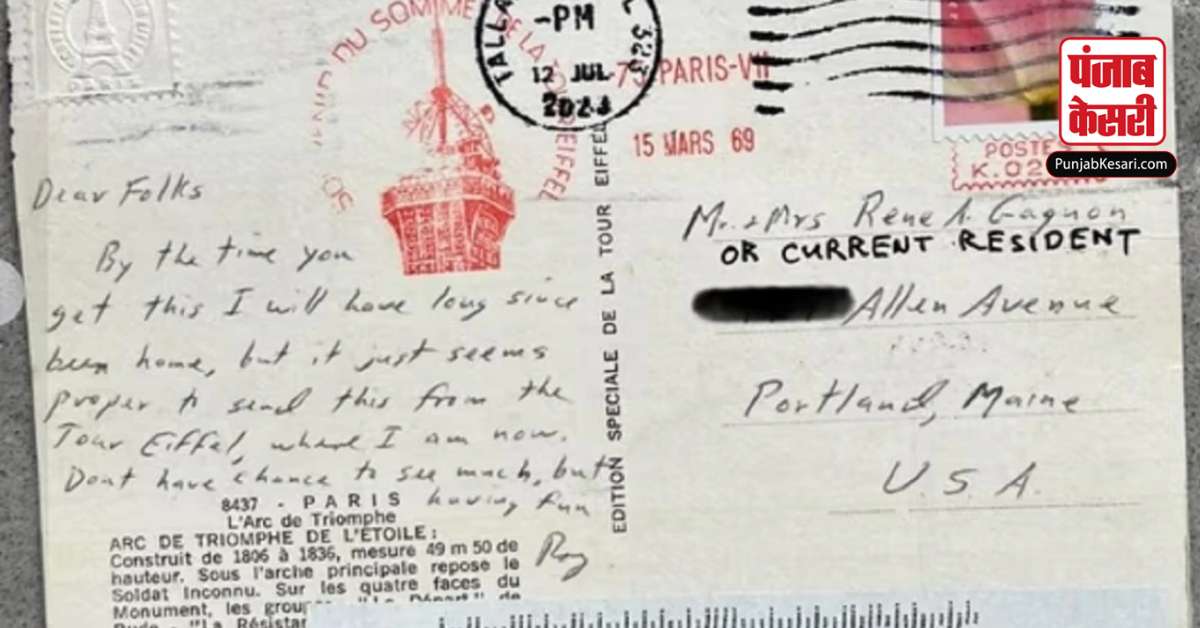 DU SOMMET DE LA TOUR EIFFEL
TALLA
-PM
L 323
12 JUL
2023
PARIS-VII
15 MARS 69
पंजाब
केसरी
PunjabKesari.com
POSTES
K.02
Dear Folks
By the time you
get this I will have long since
been home, but it just seems
proper to send this from the
Tour Eiffel, where I am now.
Dont have chance to see much, but
having fun
Roy
8437 - PARIS
L'Arc de Triomphe
ARC DE TRIOMPHE DE L'ÉTOILE :
Construit de 1806 à 1836, mesure 49 m 50 de
hauteur. Sous l'arche principale repose le
Soldat Inconnu. Sur les quatre faces du
Monument, les
"La Départ" de
Rude - "La
EDITION SPECIALE DE LA TOUR EIFFEL
Mr. + Mrs Rene A. Gagnon
OR CURRENT RESIDENT
Allen Avenue
Portland, Maine
U.S.A.